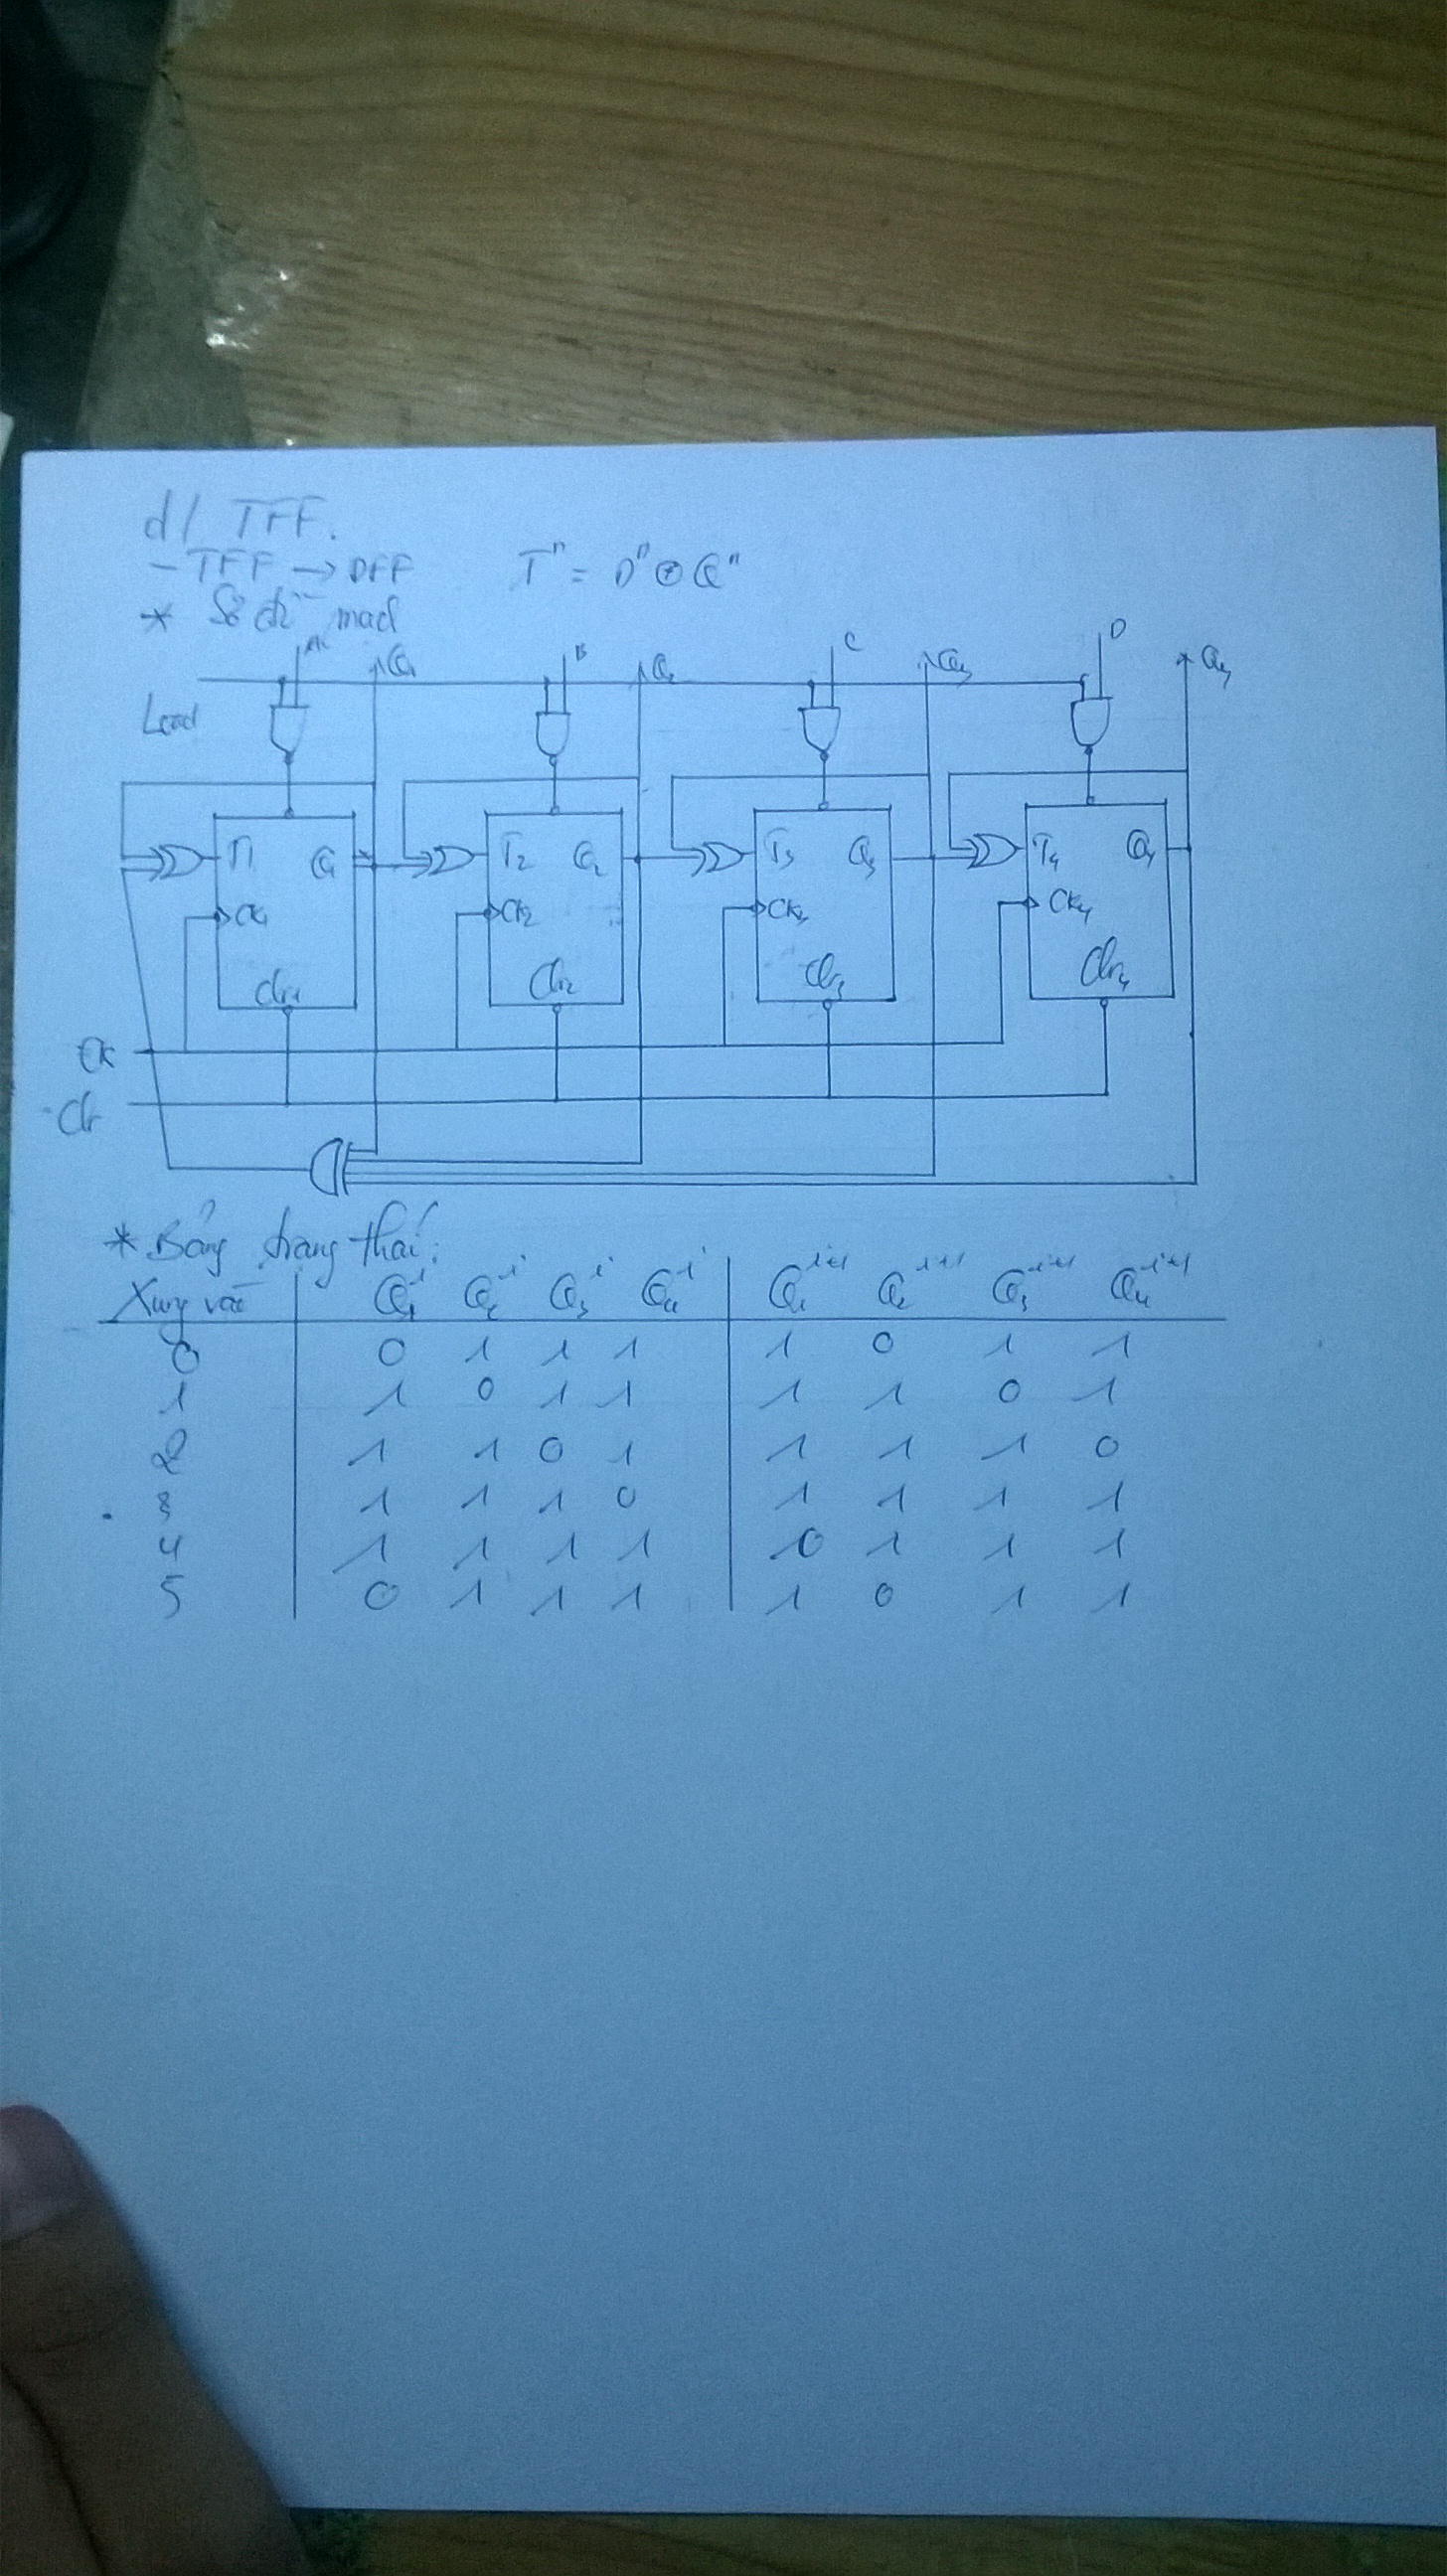 d/ TFF.
- TFF → DFF Tⁿ = Dⁿ ⊕ Qⁿ
* Sơ đồ mạch
A Q₁ B Q₂ C Q₃ D Q₄
Load
T1 Q₁ T₂ Q₂ T₃ Q₃ T₄ Q₄
CK₁ CK₂ CK₃ CK₄
Clr₁ Clr₂ Clr₃ Clr₄
CK
Clr
* Bảng trạng thái:
Xung vào Q₁ⁱ Q₂ⁱ Q₃ⁱ Q₄ⁱ Q₁ⁱ⁺¹ Q₂ⁱ⁺¹ Q₃ⁱ⁺¹ Q₄ⁱ⁺¹
0 0 1 1 1 1 0 1 1
1 1 0 1 1 1 1 0 1
2 1 1 0 1 1 1 1 0
3 1 1 1 0 1 1 1 1
4 1 1 1 1 0 1 1 1
5 0 1 1 1 1 0 1 1